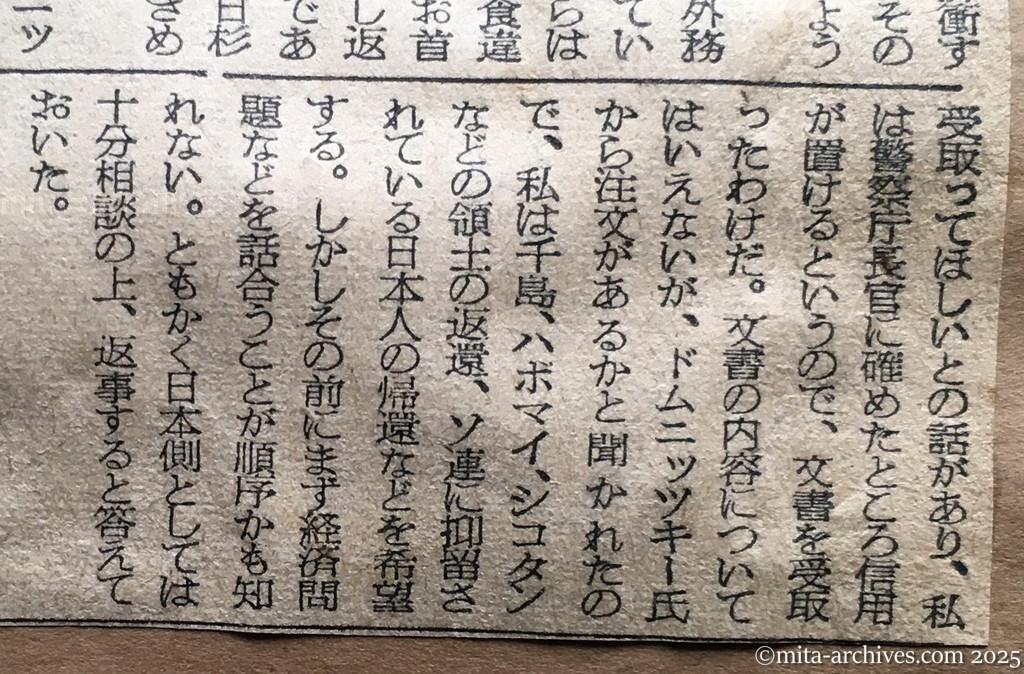 衝す
その
よう
外務
てい
らは
食違
お首
し返
であ
日杉
さめ
ーツ
受取ってほしいとの話があり、私
は警察庁長官に確めたところ信用
が置けるというので、文書を受取
ったわけだ。文書の内容について
はいえないが、ドムニッツキー氏
から注文があるかと聞かれたの
で、私は千島、ハボマイ、シコタン
などの領土の返還、ソ連に抑留さ
れている日本人の帰還などを希望
する。しかしその前にまず経済問
題などを話合うことが順序かも知
れない。ともかく日本側としては
十分相談の上、返事すると答えて
おいた。
©mita-archives.com 2025